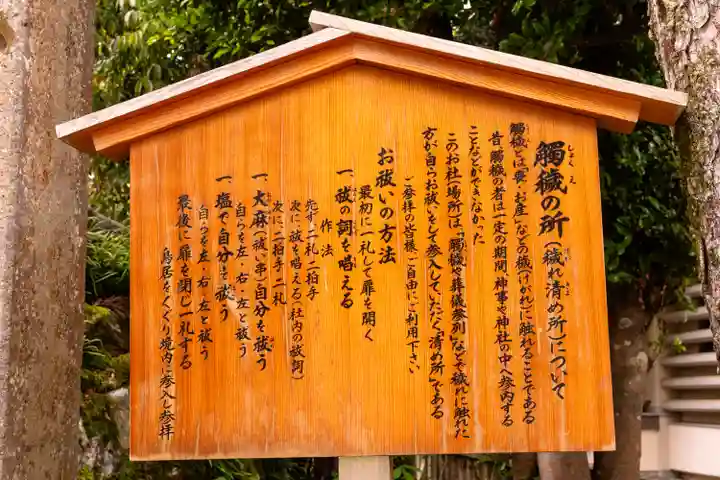 觸穢の所(穢れ清め所)について
しょくえ
觸穢とは喪・お産・などの穢(けがれ)に触れることである
昔、觸穢の者は一定の期間、神事や神社の中へ参内する
ことなどができなかった
このお社(場所)は、「觸穢や葬儀参列」などで穢れに触れた
方が自らお祓いをして参入していただく「清め所」である
ご参拝の皆様ご自由にご利用下さい
お祓いの方法
最初に一礼して扉を開く
一、祓の詞を唱える
作法
先ず二礼二拍手
次に祓を唱える(社内の祓詞)
次に二拍手二礼
一、大麻(祓い串)で自分を祓う
自らを左・右・左と祓う
一、塩で自分を祓う
自らを左・右・左と祓う
最後に扉を閉じ一礼する
鳥居をくぐり境内に参入し参拝